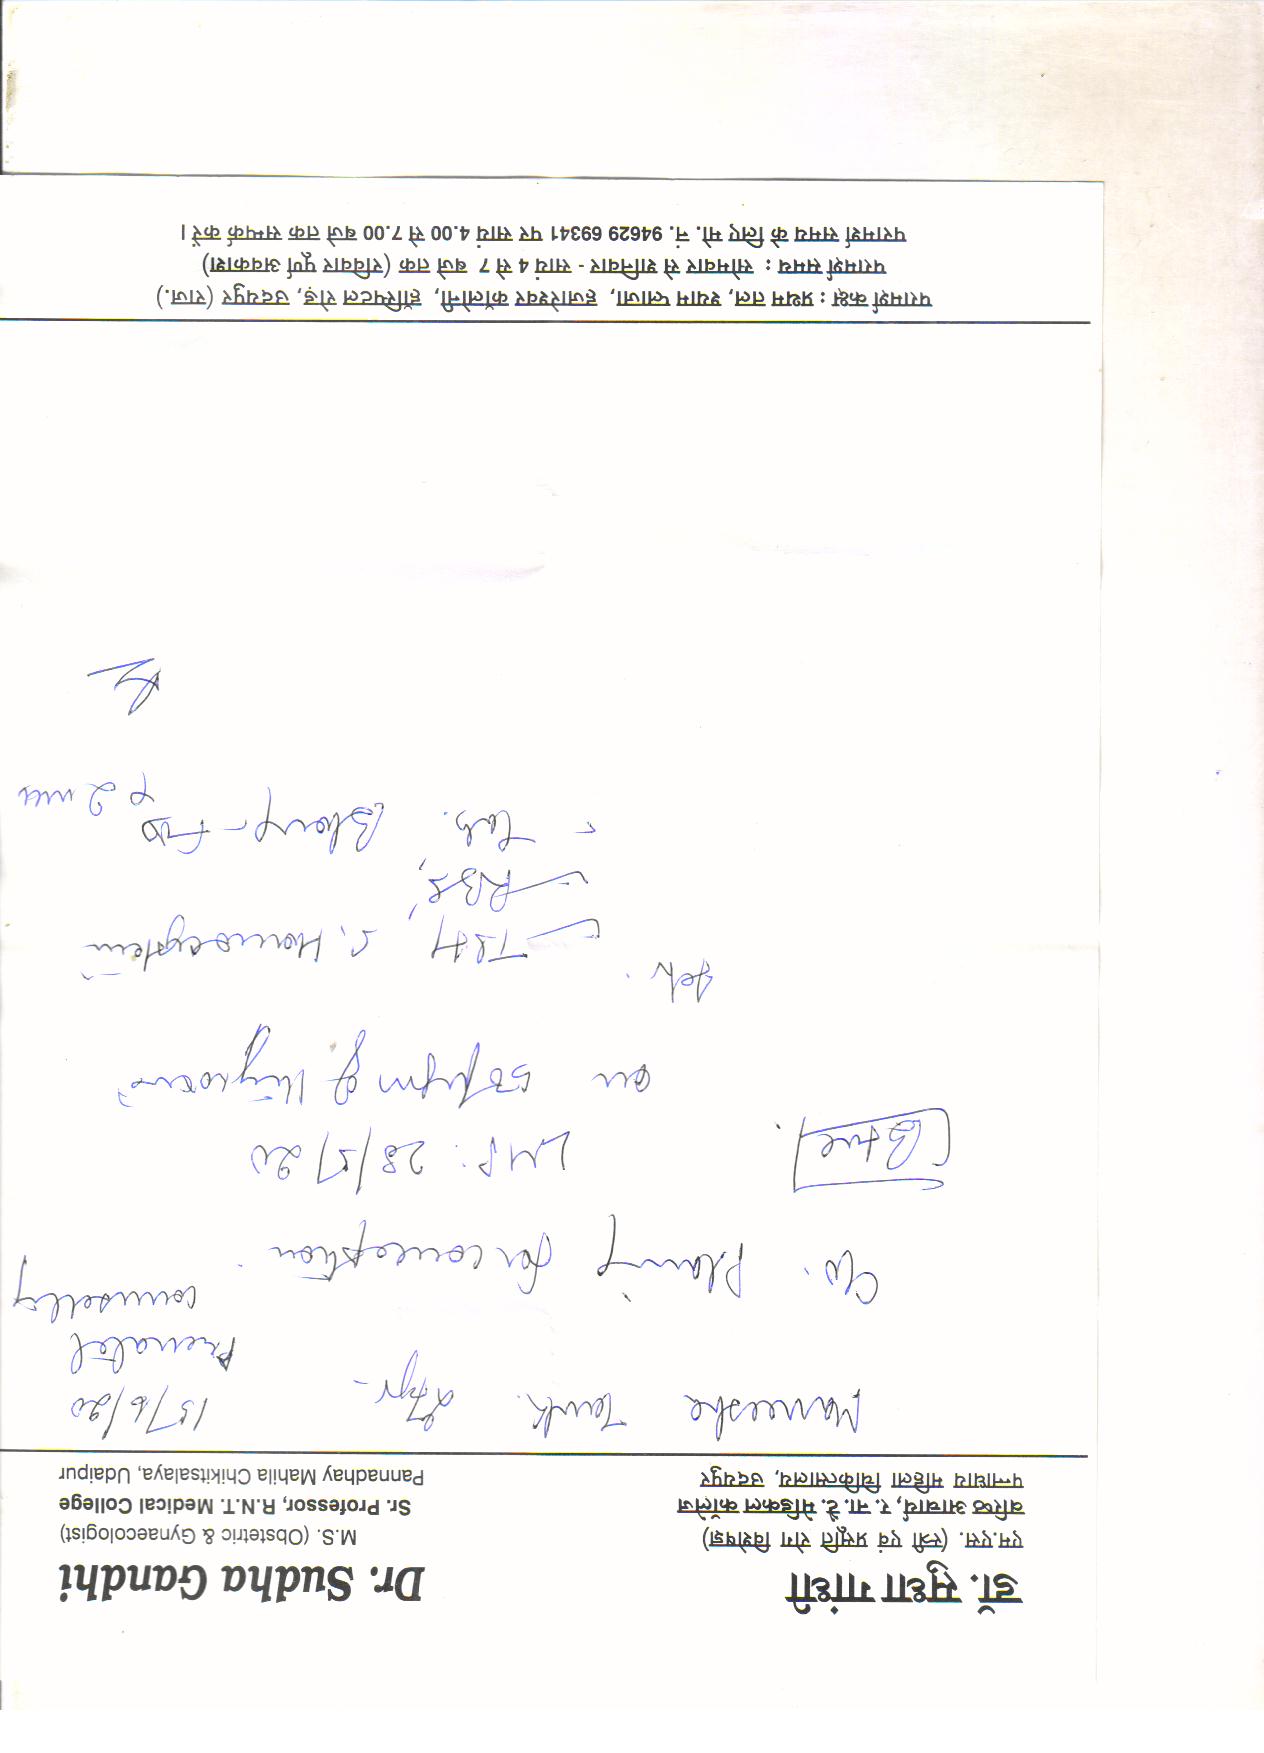 डॉ. सुधा गांधी
एम.एस. (स्त्री एवं प्रसूति रोग विशेषज्ञ)
वरिष्ठ आचार्य, र. ना. टै. मेडिकल कॉलेज
पन्नाधाय महिला चिकित्सालय, उदयपुर
Dr. Sudha Gandhi
M.S. (Obstetric & Gynaecologist)
Sr. Professor, R.N.T. Medical College
Pannadhay Mahila Chikitsalaya, Udaipur
27yr 15/6/20
Prenatal
counselling
C/o. Planing for conception
LMP: 28/5/20
B+ve
on 50 of
Adv.
TSH, S. Homocystein
RBS,
Tab.
परामर्श कक्ष : प्रथम तल, श्याम प्लाजा, हजारेश्वर कॉलोनी, हॉस्पिटल रोड़, उदयपुर (राज.)
परामर्श समय : सोमवार से शनिवार - सायं 4 से 7 बजे तक (रविवार पूर्ण अवकाश)
परामर्श समय के लिए मो. नं. 94629 69341 पर सायं 4.00 से 7.00 बजे तक सम्पर्क करें।